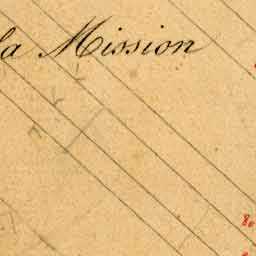 la Mission
80